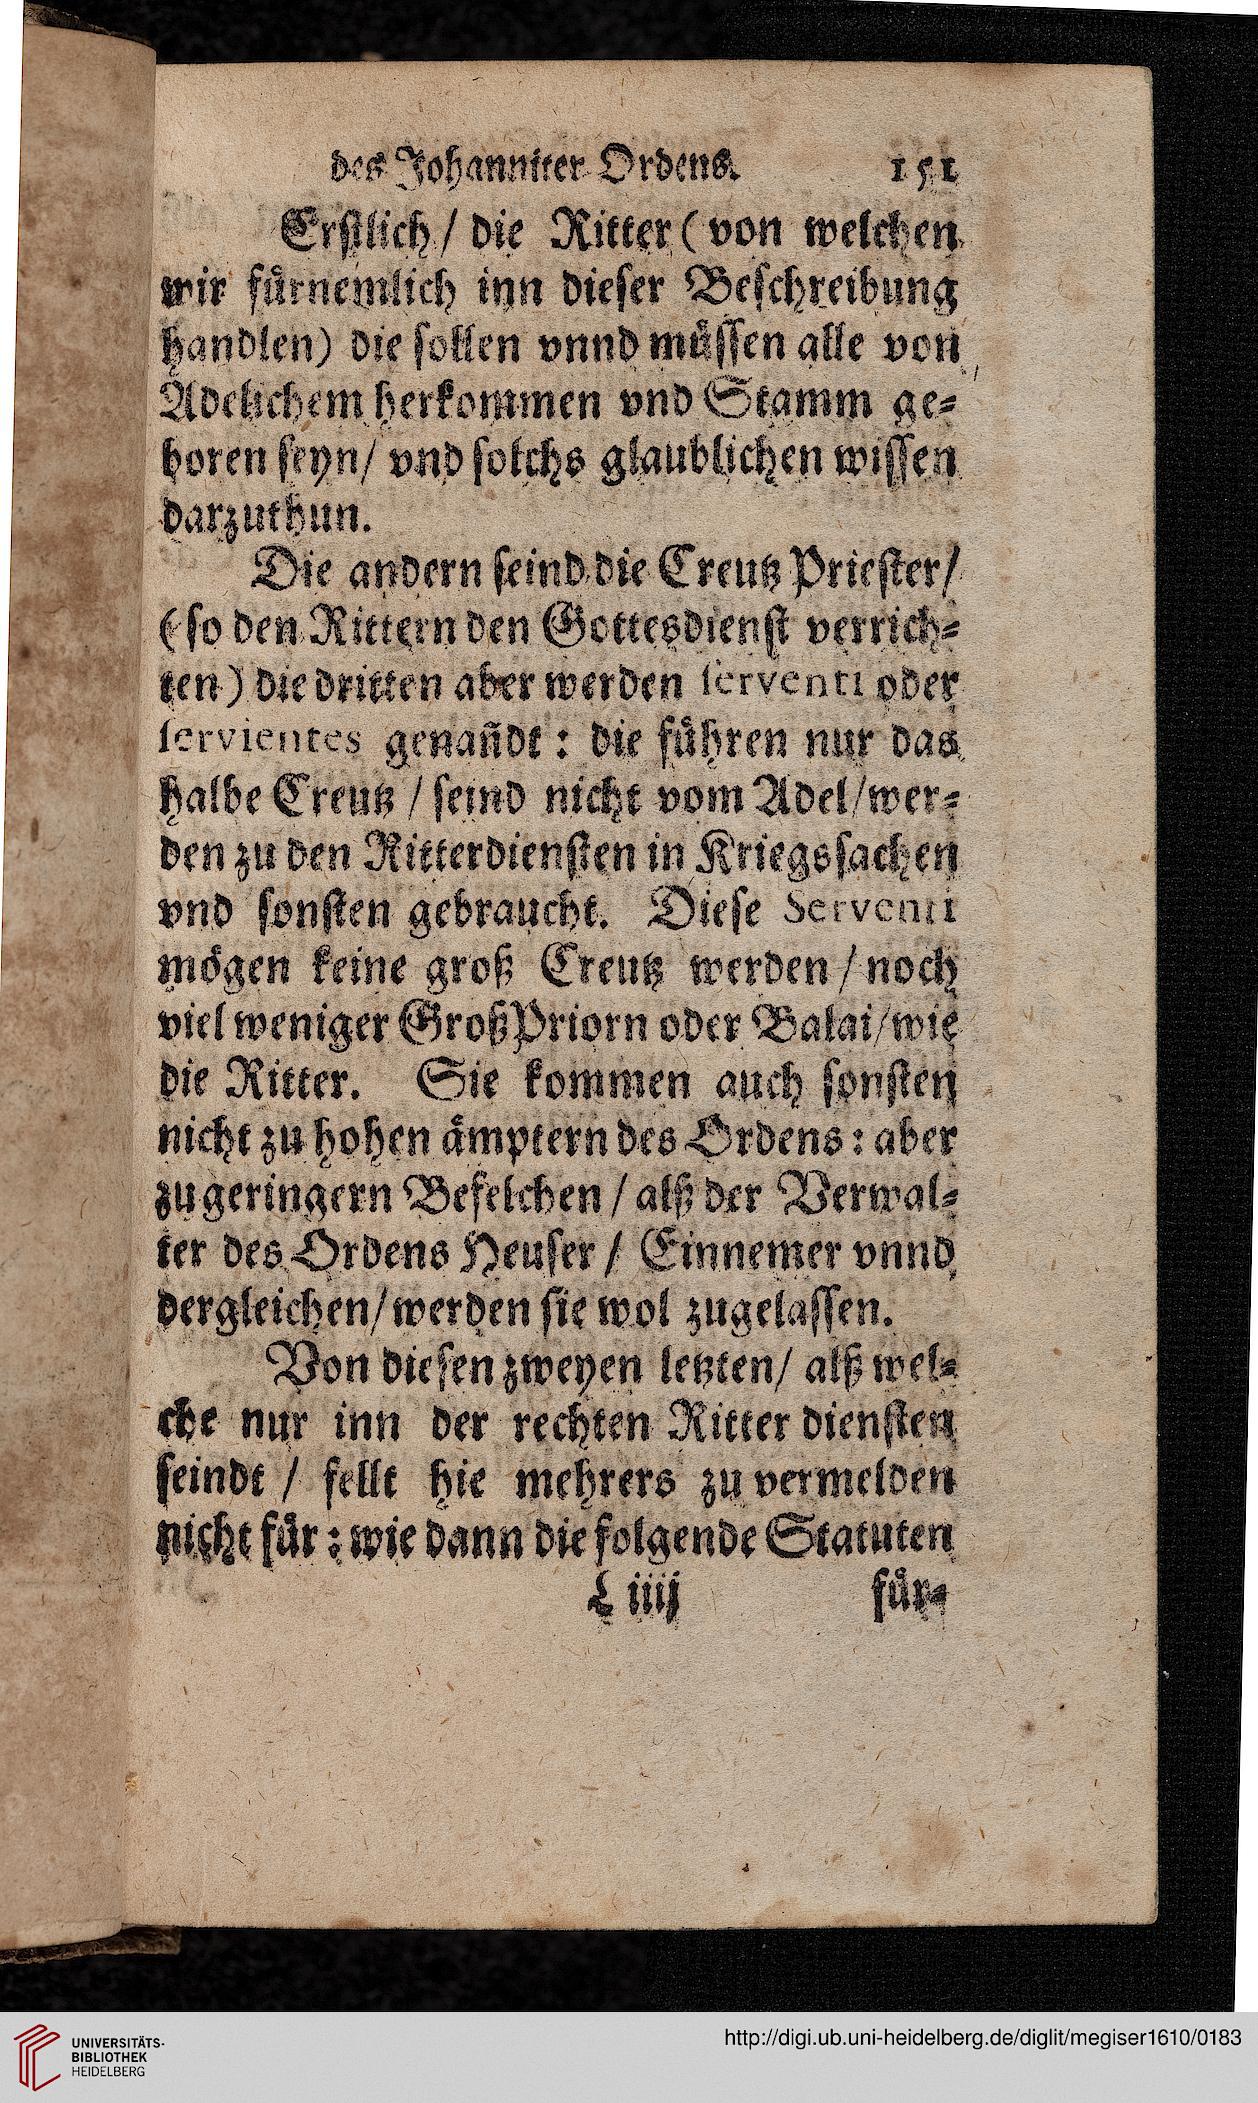 des Johanniter Ordens. 151
Erstlich / die Ritter ( von welchen
wir fürnemlich inn dieser Beschreibung
handlen) die sollen vnnd müssen alle von
Adelichem herkommen vnd Stamm ge=
boren seyn / vnd solchs glaublichen wissen
darzuthun.
Die andern seind die Creutz Priester /
( so den Rittern den Gottesdienst verrich=
ten ) die dritten aber werden serventi oder
servientes genañdt : die führen nur das
halbe Creutz / seind nicht vom Adel / wer=
den zu den Ritterdiensten in Kriegssachen
vnd sonsten gebraucht. Diese Serventi
mögen keine groß Creutz werden / noch
viel weniger GroßPriorn oder Balai / wie
die Ritter. Sie kommen auch sonsten
nicht zu hohen ämptern des Ordens : aber
zu geringern Befelchen / alß der Verwal=
ter des Ordens Heuser / Einnemer vnnd
dergleichen / werden sie wol zugelassen.
Von diesen zweyen letzten / alß wel=
che nur inn der rechten Ritter diensten
seindt / fellt hie mehrers zu vermelden
nicht für : wie dann die folgende Statuten
L iiij für=
UNIVERSITÄTS-
BIBLIOTHEK
HEIDELBERG
http://digi.ub.uni-heidelberg.de/diglit/megiser1610/0183